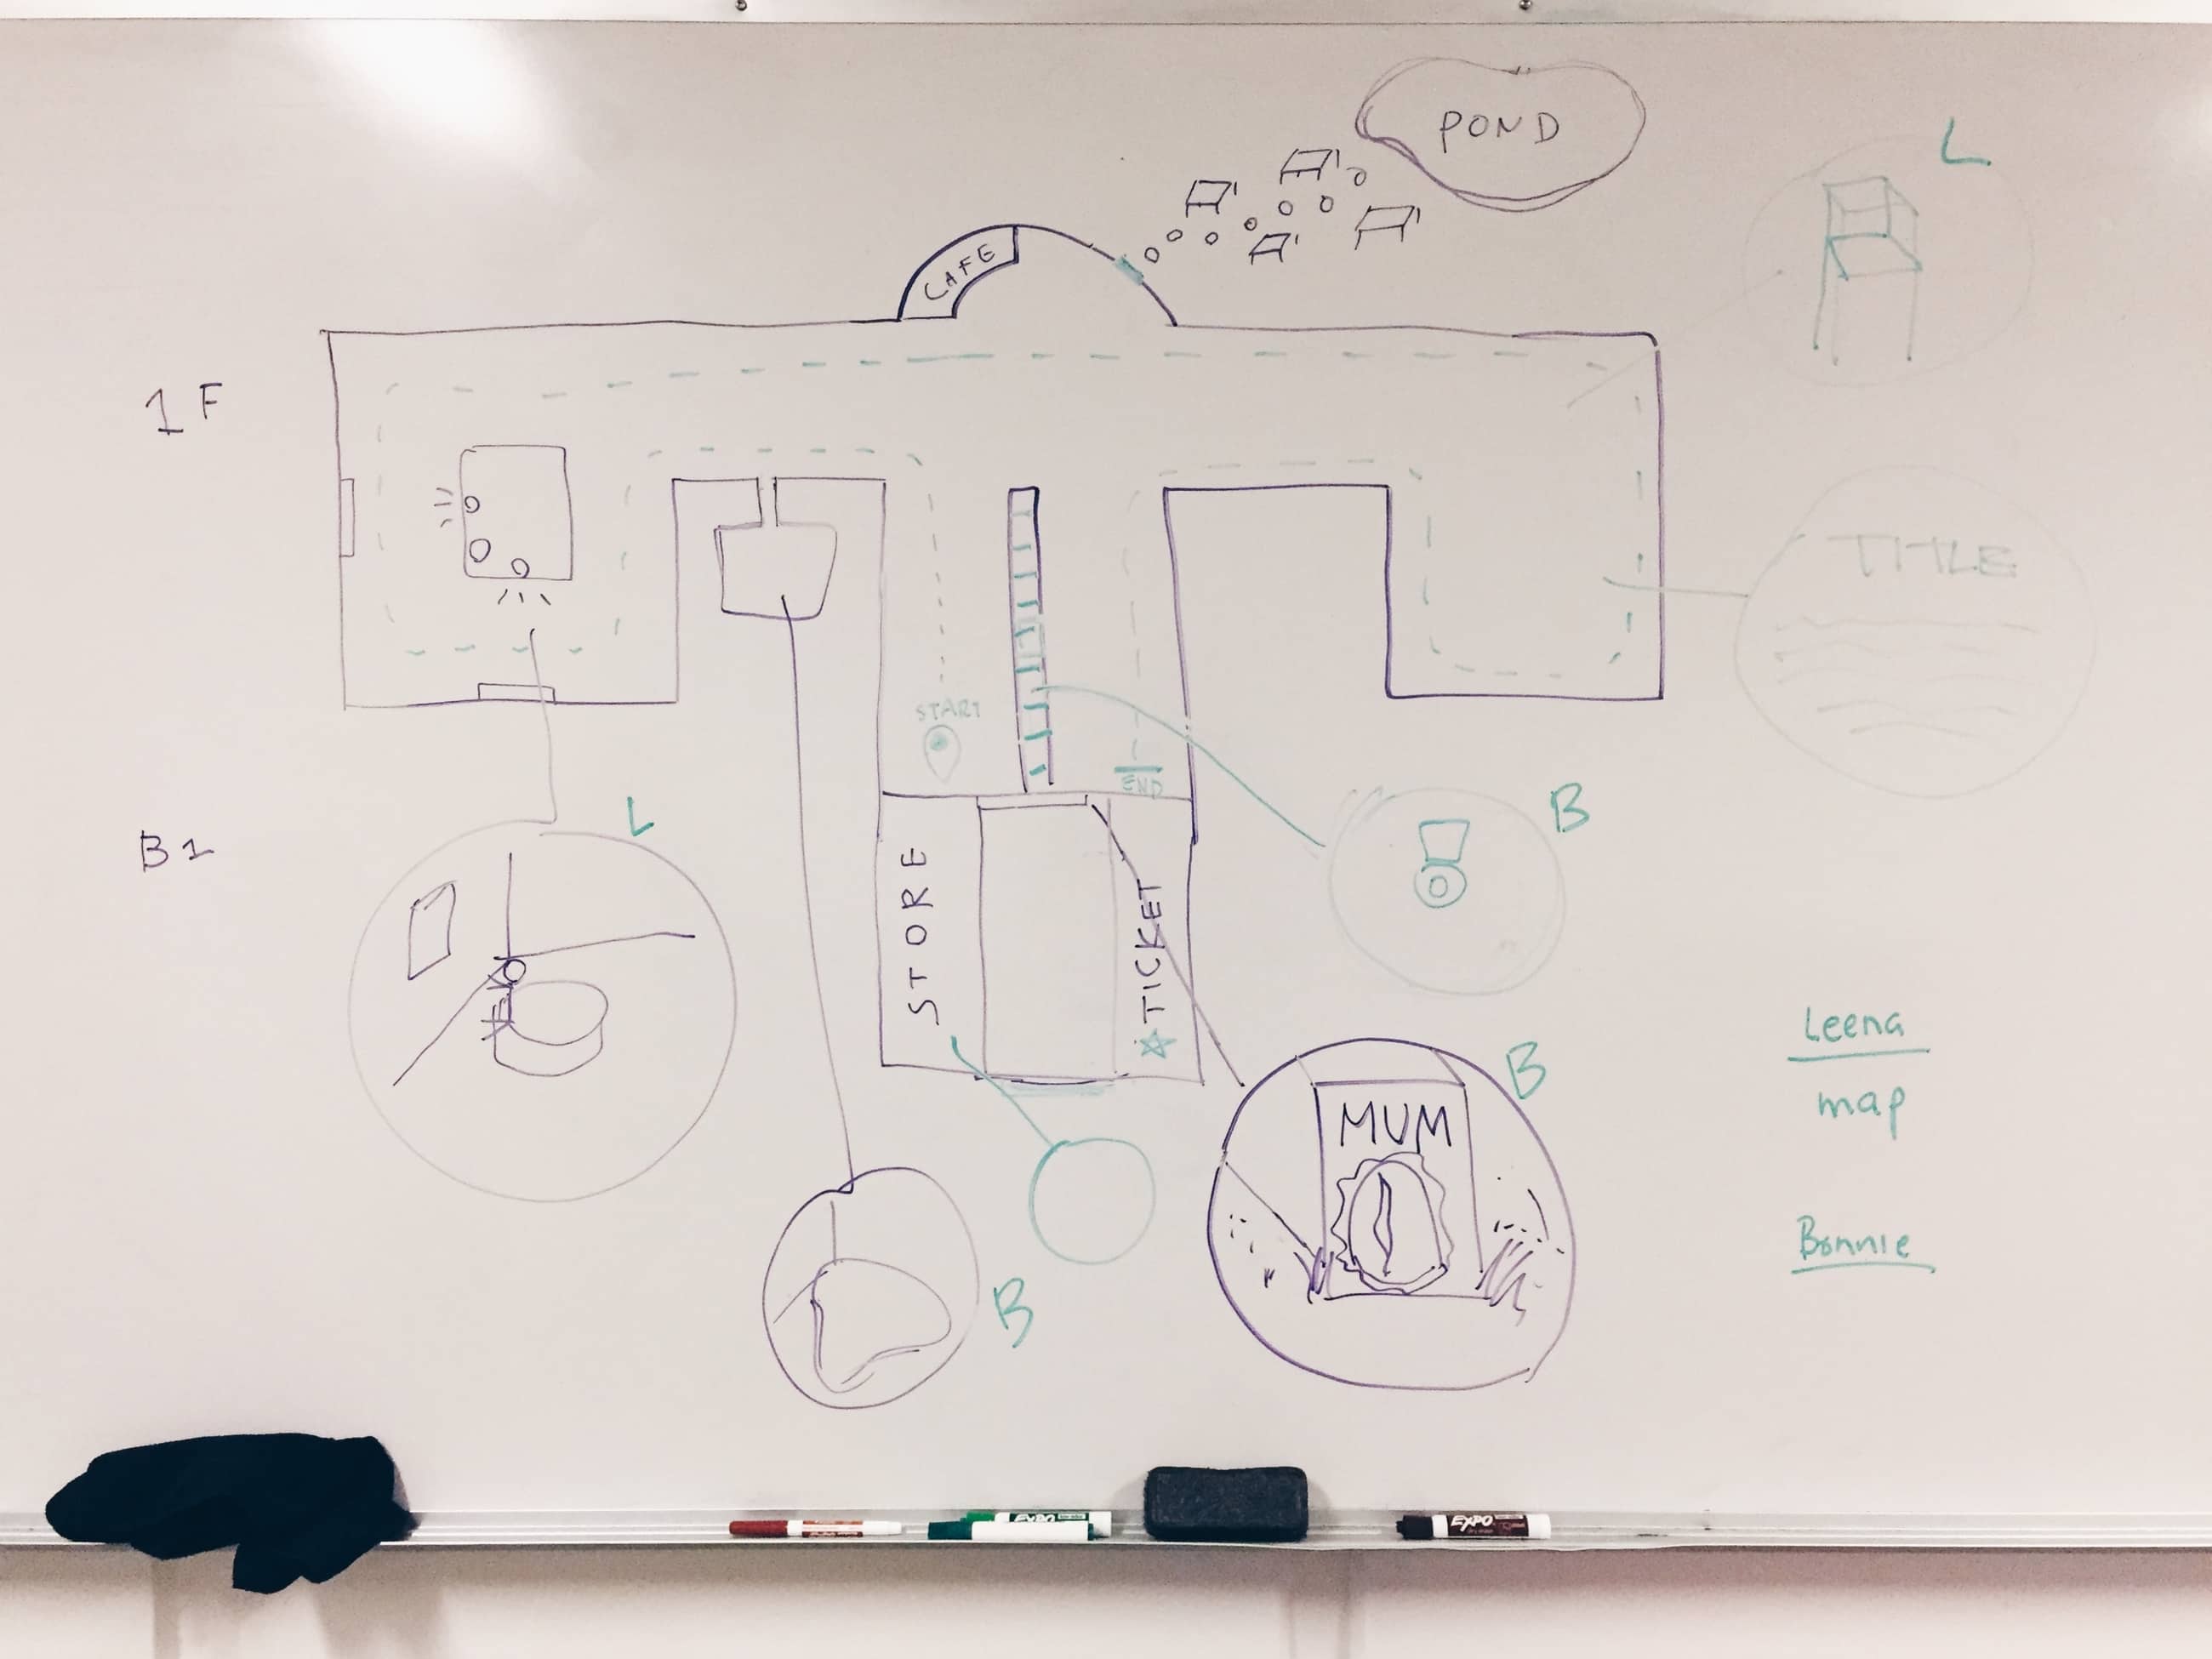 POND
L
CAFE
1F
TITLE
START
END
B
L
B1
STORE
TICKET
Leena
map
B
MUM
Bonnie
B
EXPO
EXPO